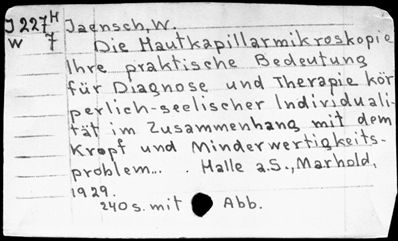 J 227 H Jaensch, W.
W 7 Die Hautkapillarmikroskopie
Ihre praktische Bedeutung
für Diagnose und Therapie kör
perlich-seelischer Individuali-
tät im Zusammenhang mit dem
Kropf und Minderwertigkeits-
problem... . Halle a.S., Marhold,
1929.
240 s. mit Abb.